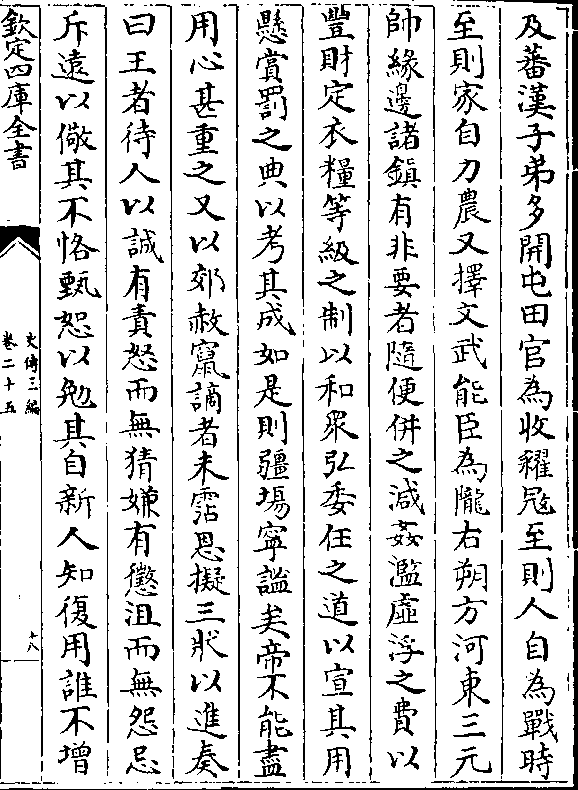 及蕃漢子弟多開屯田官為收糴冦至則人自為戰時
至則家自力農又擇文武能臣為隴右朔方河東三元
帥緣邊諸鎮有非要者隨便併之減姦濫虛浮之費以
豐財定衣糧等級之制以和衆弘委任之道以宣其用
懸賞罰之典以考其成如是則疆埸寧謐矣帝不能盡
用心甚重之又以郊赦竄謫者未霑恩擬三狀以進奏
曰王者待人以誠有責怒而無猜嫌有懲沮而無怨忌
斥遠以儆其不恪甄恕以勉其自新人知復用誰不增
欽定四庫全書
史傳三編
卷二十五
十八